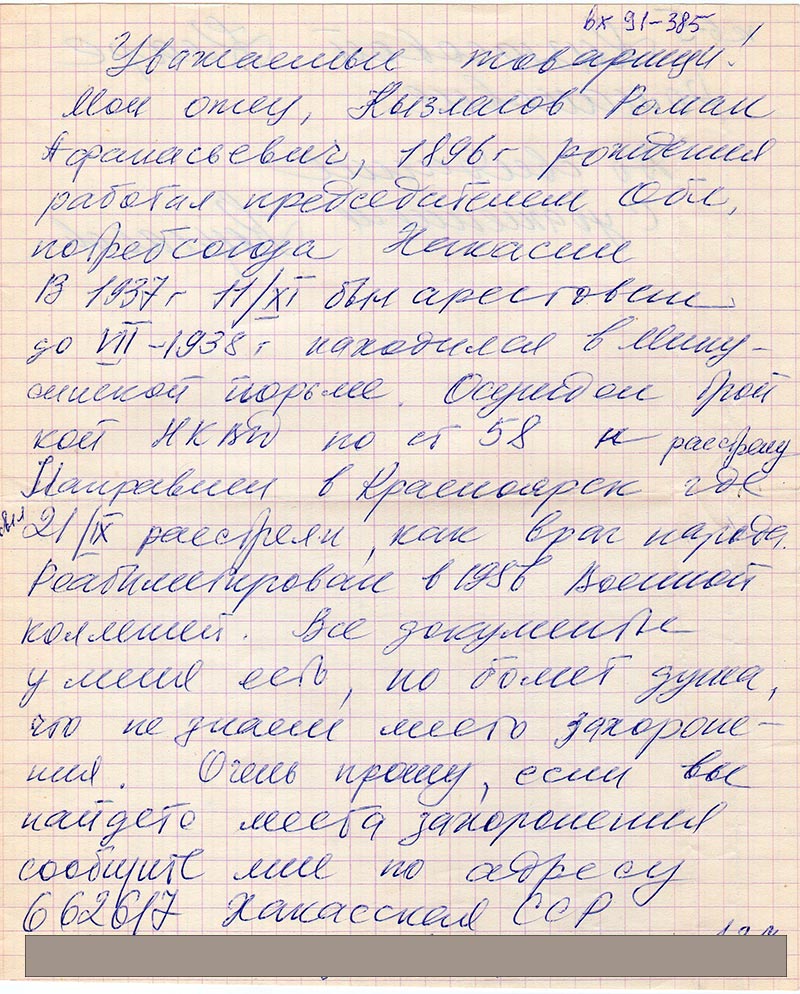 вх 91-385
Уважаемые товарищи!
Мой отец, Кызласов Роман
Афанасьевич, 1896 г рождения
работал председателем Обл,
потребсоюза Хакасии
В 1937 г 11/XI был арестован
до VII-1938 г находился в Мину-
синской тюрьме. Осужден Трой
кой НКВД по ст 58 к расстрелу
Направили в Красноярск где
21/IX расстреляли, как враг народа.
Реабилитирован в 1956 Военной
коллегией. Все документы
у меня есть, но болит душа,
что не знаем место захороне-
ния. Очень прошу, если вы
найдете места захоронения
сообщите мне по адресу
662617 Хакасская ССР